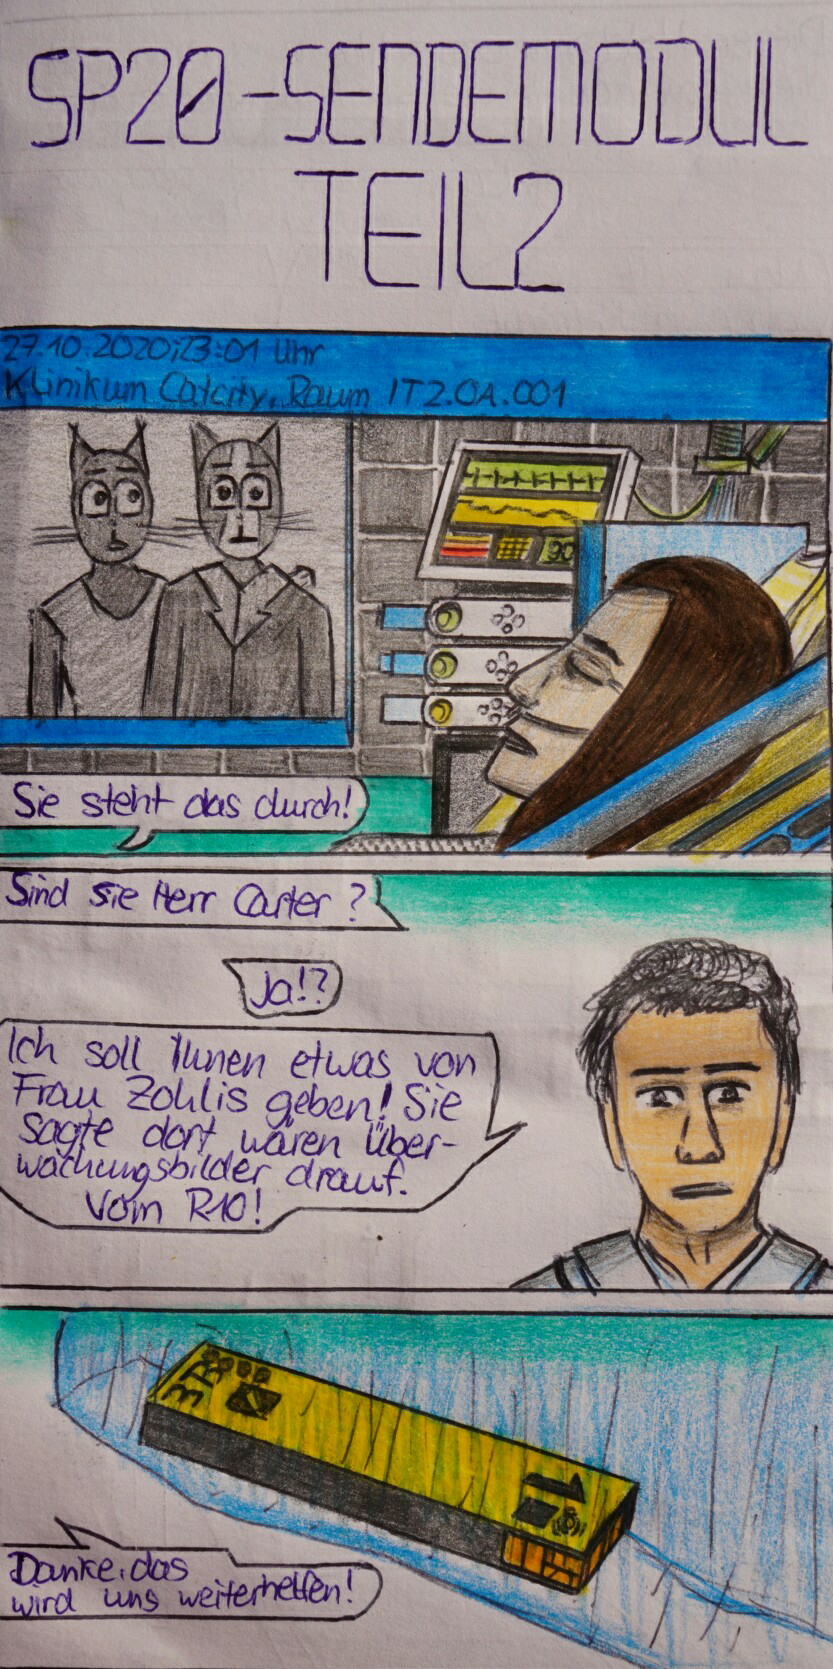 SP20-SENDEMODUL
TEIL2
27.10.2020; 23:01 Uhr
Klinikum Catcity, Raum IT2.OA.001
90
Sie steht das durch!
Sind sie Herr Carter?
Ja!?
Ich soll Ihnen etwas von
Frau Zohlis geben! Sie
sagte dort wären Über-
wachungsbilder drauf.
Vom R10!
Danke, das
wird uns weiterhelfen!